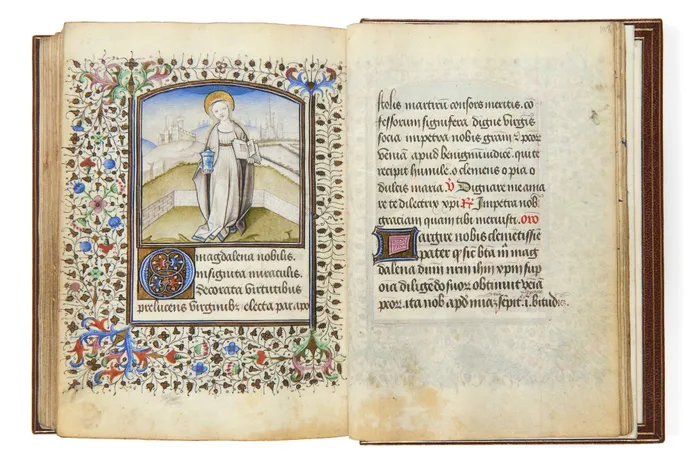 magdalena nobilis.
insignita miraculis.
Decorata virtutibus
prelucens virginibꝰ electa par. apo
stolis martirū consors meritis. cō
fessorum signifera digne virgīs
socia impetra nobis gratiā et peccor
veniā apud benignū iudicē. qui te
recipit humilē. o clemens o pia o
dulcis maria. V Dignare me ama
re te dilectrix xpi R Impetra nob
graciam quam tibi meruisti. oro
Largire nobis clemētissīe
pater qͥ sic bta m mag
dalena dūm nrm ihm xpm sup
oīa diligēdo suor obtinuit
peccor. ita nob apd